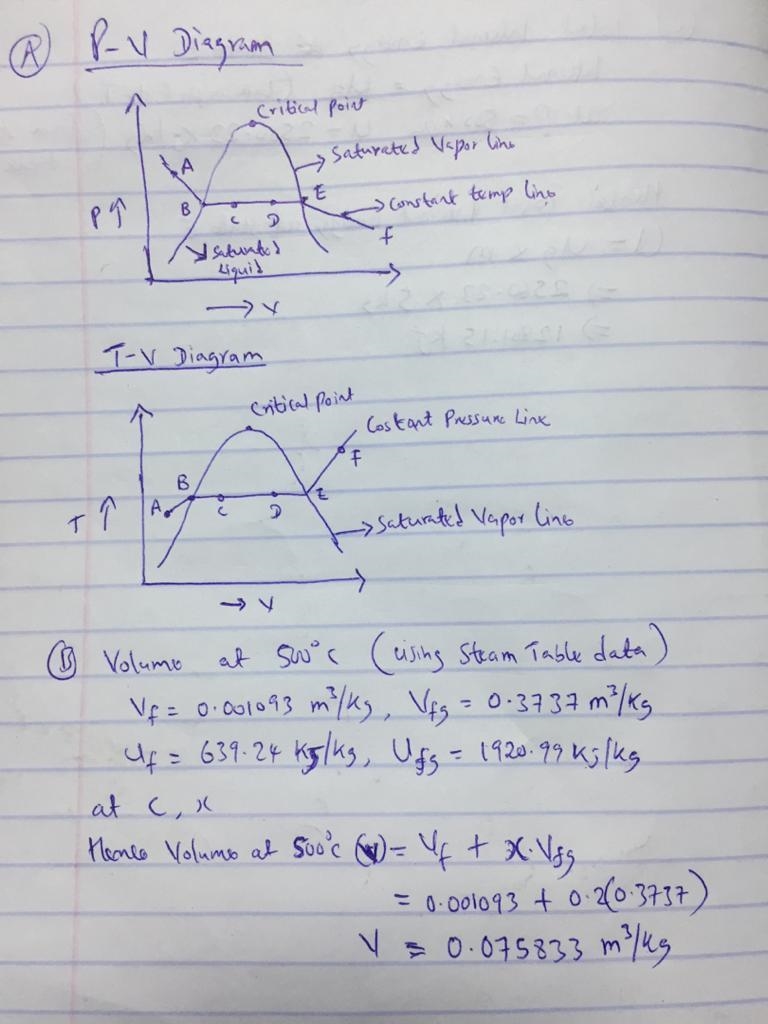 A P-V Diagram
Critical point
Saturated Vapor line
A
E
Constant temp line
P↑
B
C
D
f
Saturated
liquid
→ V
T-V Diagram
Critical Point
Costant Pressure Line
F
B
A
C
D
E
T ↑
Saturated Vapor line
→ V
B Volume at 500°C (using Steam Table data)
Vf = 0.001093 m³/kg, Vfg = 0.3737 m³/kg
Uf = 639.24 kJ/kg, Ufg = 1920.99 kJ/kg
at C, x
Hence Volume at 500°C (v) = Vf + x.Vfg
= 0.001093 + 0.2(0.3737)
V = 0.075833 m³/kg